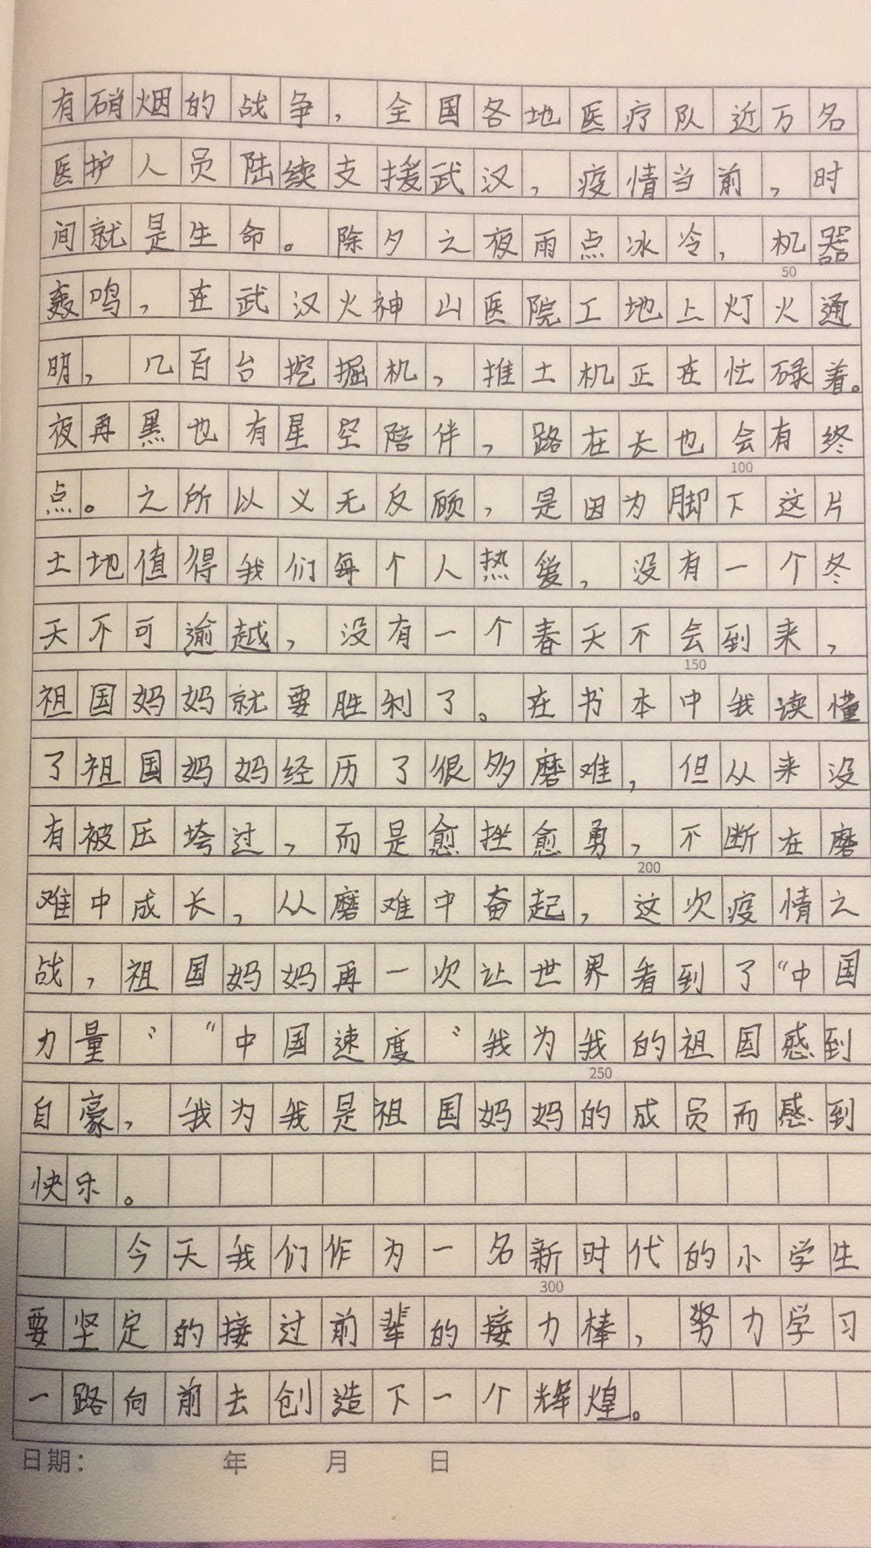 有硝烟的战争，全国各地医疗队近万名
医护人员陆续支援武汉，疫情当前，时
间就是生命。除夕之夜雨点冰冷，机器
50
轰鸣，在武汉火神山医院工地上灯火通
明，几百台挖掘机，推土机正在忙碌着。
夜再黑也有星空陪伴，路在长也会有终
100
点。之所以义无反顾，是因为脚下这片
土地值得我们每个人热爱，没有一个冬
天不可逾越，没有一个春天不会到来，
150
祖国妈妈就要胜利了。在书本中我读懂
了祖国妈妈经历了很多磨难，但从来没
有被压垮过，而是愈挫愈勇，不断在磨
200
难中成长，从磨难中奋起，这次疫情之
战，祖国妈妈再一次让世界看到了“中国
力量”“中国速度”我为我的祖国感到
250
自豪，我为我是祖国妈妈的成员而感到
快乐。
今天我们作为一名新时代的小学生
300
要坚定的接过前辈的接力棒，努力学习
一路向前去创造下一个辉煌。
日期： 年 月 日